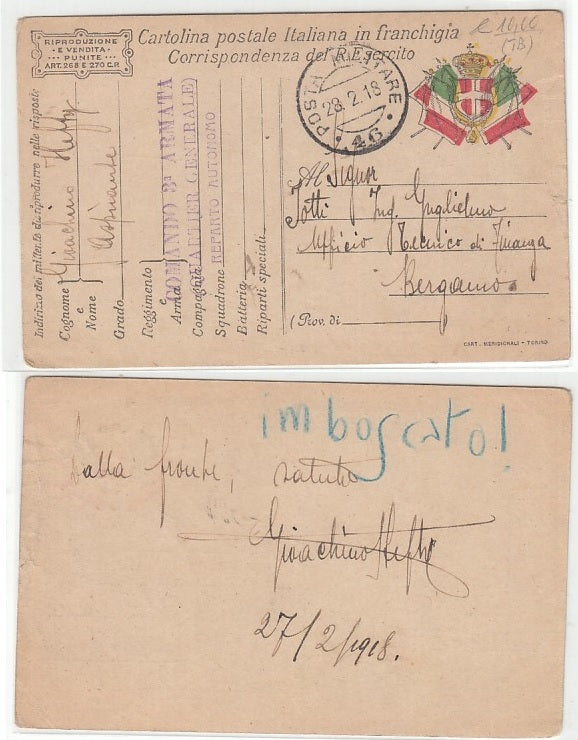 RIPRODUZIONE
E VENDITA
PUNITE
ART. 268 E 270 C.P.
Cartolina postale Italiana in franchigia
Corrispondenza del R. Esercito
(TB)
POSTA MILITARE
28.2.18
46
Al Signor
Totti Ing. Guglielmo
Ufficio Tecnico di Finanza
Bergamo
(Prov. di
CART. MERIDIONALI - TORINO
Indirizzo del mittente da riprodurre nelle risposte
Cognome Gioachino
e
Nome
Grado Aspirante
Reggimento
e
Arma
Compagnia
Squadrone
Batteria
Riparti speciali
COMANDO 3ª ARMATA
(QUARTIER GENERALE)
REPARTO AUTONOMO
imboscato!
Dalla fronte, saluti
Gioachino
27/2/1918.